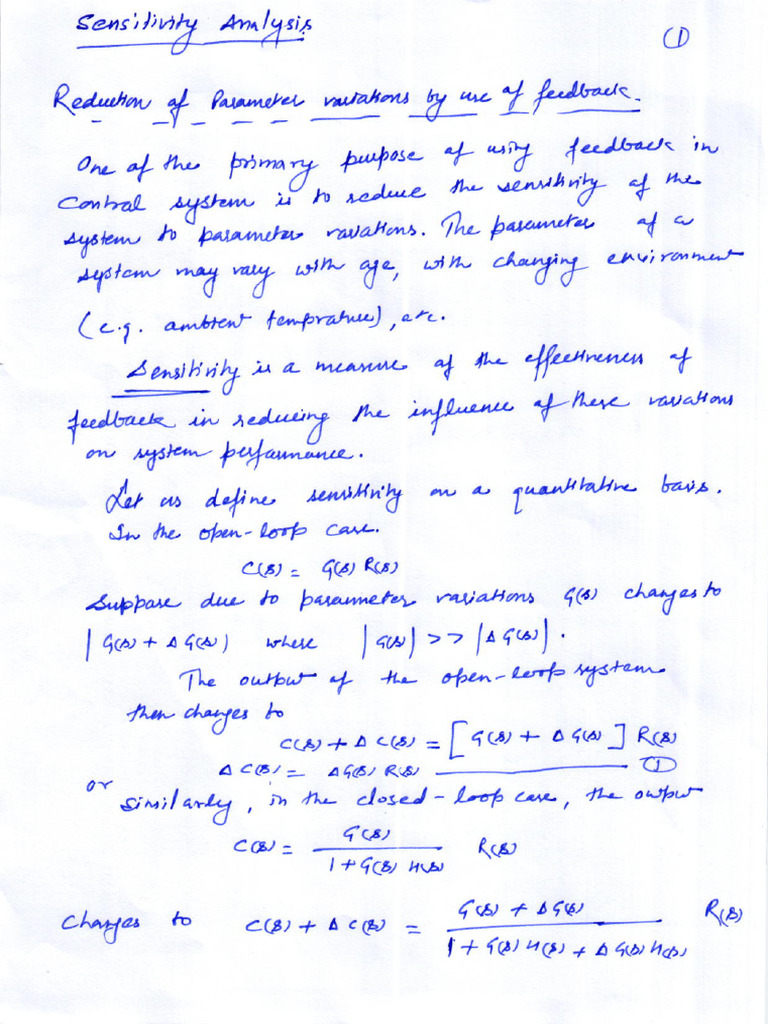 Sensitivity Analysis
①
Reduction of Parameter variations by use of feedback.
One of the primary purpose of using feedback in
Control system is to reduce the sensitivity of the
system to parameter variations. The parameter of a
system may vary with age, with changing environment
(e.g. ambient temprature), etc.
Sensitivity is a measure of the effectiveness of
feedback in reducing the influence of these variations
on system performance.
Let us define sensitivity on a quantitative basis.
In the open-loop case.
C(s) = G(s) R(s)
Suppose due to parameter variations G(s) changes to
| G(s) + Δ G(s) ) where |G(s)| >> |Δ G(s)|.
The output of the open-loop system
then changes to
C(s) + Δ C(s) = [ G(s) + Δ G(s) ] R(s)
or Δ C(s) = ΔG(s) R(s) ①
similarly, in the closed-loop case, the output
C(s) = G(s) / 1 + G(s) H(s) R(s)
Changes to C(s) + Δ C(s) = G(s) + Δ G(s) / 1 + G(s) H(s) + Δ G(s) H(s) R(s)